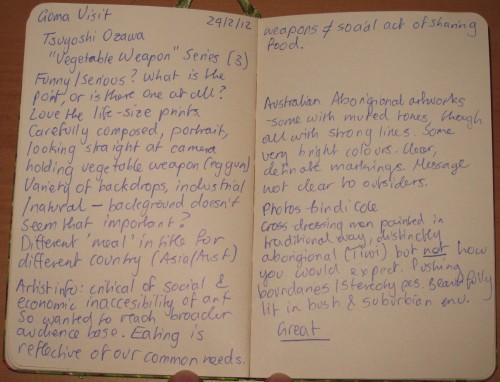 Goma Visit 24/2/12
Tsuyoshi Ozawa
"Vegetable Weapon" Series (3)
Funny/Serious? What is the
point, or is there one at all?
Love the life-size prints
Carefully composed, portrait,
looking straight at camera
holding vegetable weapon (eg gun)
Variety of backdrops, industrial
/natural – background doesn't
seem that important?
Different 'meal' in title for
different country (Asia/Aust.)
Artist info: critical of social &
economic inaccesibility of art
So wanted to reach broader
audience base. Eating is
reflective of our common needs.
weapons ≠ social act of sharing
food.
Australian Aboriginal artworks
- some with muted tones, though
all with strong lines. Some
very bright colours. Clear,
definate markings. Message
not clear to outsiders.
Photos - Bindi Cole
Cross-dressing men painted in
traditional way, distinctly
aboriginal (Tiwi) but not how
you would expect. Pushing
boundaries/stereotypes. Beautifully
lit in bush & suburban env.
Great